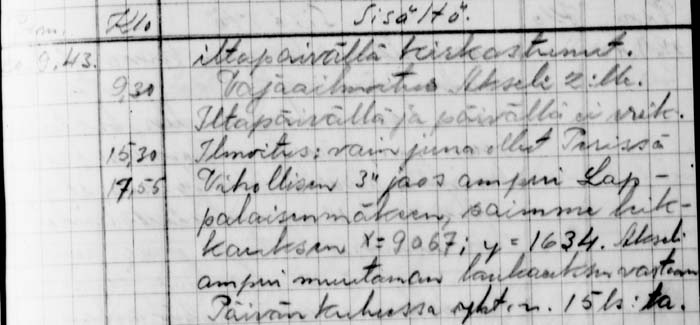 Klo Sisältö.
9.43. iltapäivällä kirkastunut.
9,30 Vajaailmoitus Akseli 2:lle.
Iltapäivällä ja päivällä ei
15,30 Ilmoitus: vain juna ollut
17,55 Vihollisen 3" jaos ampui Lap-
palaisenmäkeen, saimme leik-
kauksen x=9067; y=1634. Akseli
ampui muutaman laukauksen vastaan
Päivän kuluessa yht. n. 15 ls:ta.